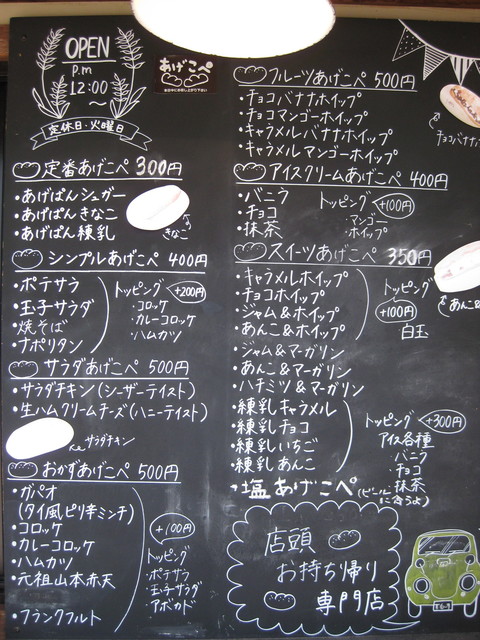 OPEN
P.m
12:00
〜
定休日・火曜日
あげこぺ
定番あげこぺ 300円
・あげぱんシュガー
・あげぱんきなこ
・あげぱん練乳
きなこ
シンプルあげこぺ 400円
・ポテサラ
・玉子サラダ
・焼そば
・ナポリタン
トッピング +200円
・コロッケ
・カレーコロッケ
・ハムカツ
サラダあげこぺ 500円
・サラダチキン(シーザーテイスト)
・生ハムクリームチーズ(ハニーテイスト)
サラダチキン
おかずあげこぺ 500円
・ガパオ
(タイ風ピリ辛ミンチ)
・コロッケ
・カレーコロッケ
・ハムカツ
・元祖山本赤天
・フランクフルト
+100円
トッピング
・ポテサラ
・玉子サラダ
・アボカド
フルーツあげこぺ 500円
・チョコバナナホイップ
・チョコマンゴーホイップ
・キャラメルバナナホイップ
・キャラメルマンゴーホイップ
チョコバナナ
アイスクリームあげこぺ 400円
・バニラ
・チョコ
・抹茶
トッピング +100円
・マンゴー
・ホイップ
スイーツあげこぺ 350円
・キャラメルホイップ
・チョコホイップ
・ジャム&ホイップ
・あんこ&ホイップ
トッピング
+100円
白玉
あんこ&
・ジャム&マーガリン
・あんこ&マーガリン
・ハチミツ&マーガリン
・練乳キャラメル
・練乳チョコ
・練乳いちご
・練乳あんこ
トッピング +300円
アイス各種
・バニラ
・チョコ
・抹茶
・塩あげこぺ(ビールに合うよ)
店頭
お持ち帰り
専門店